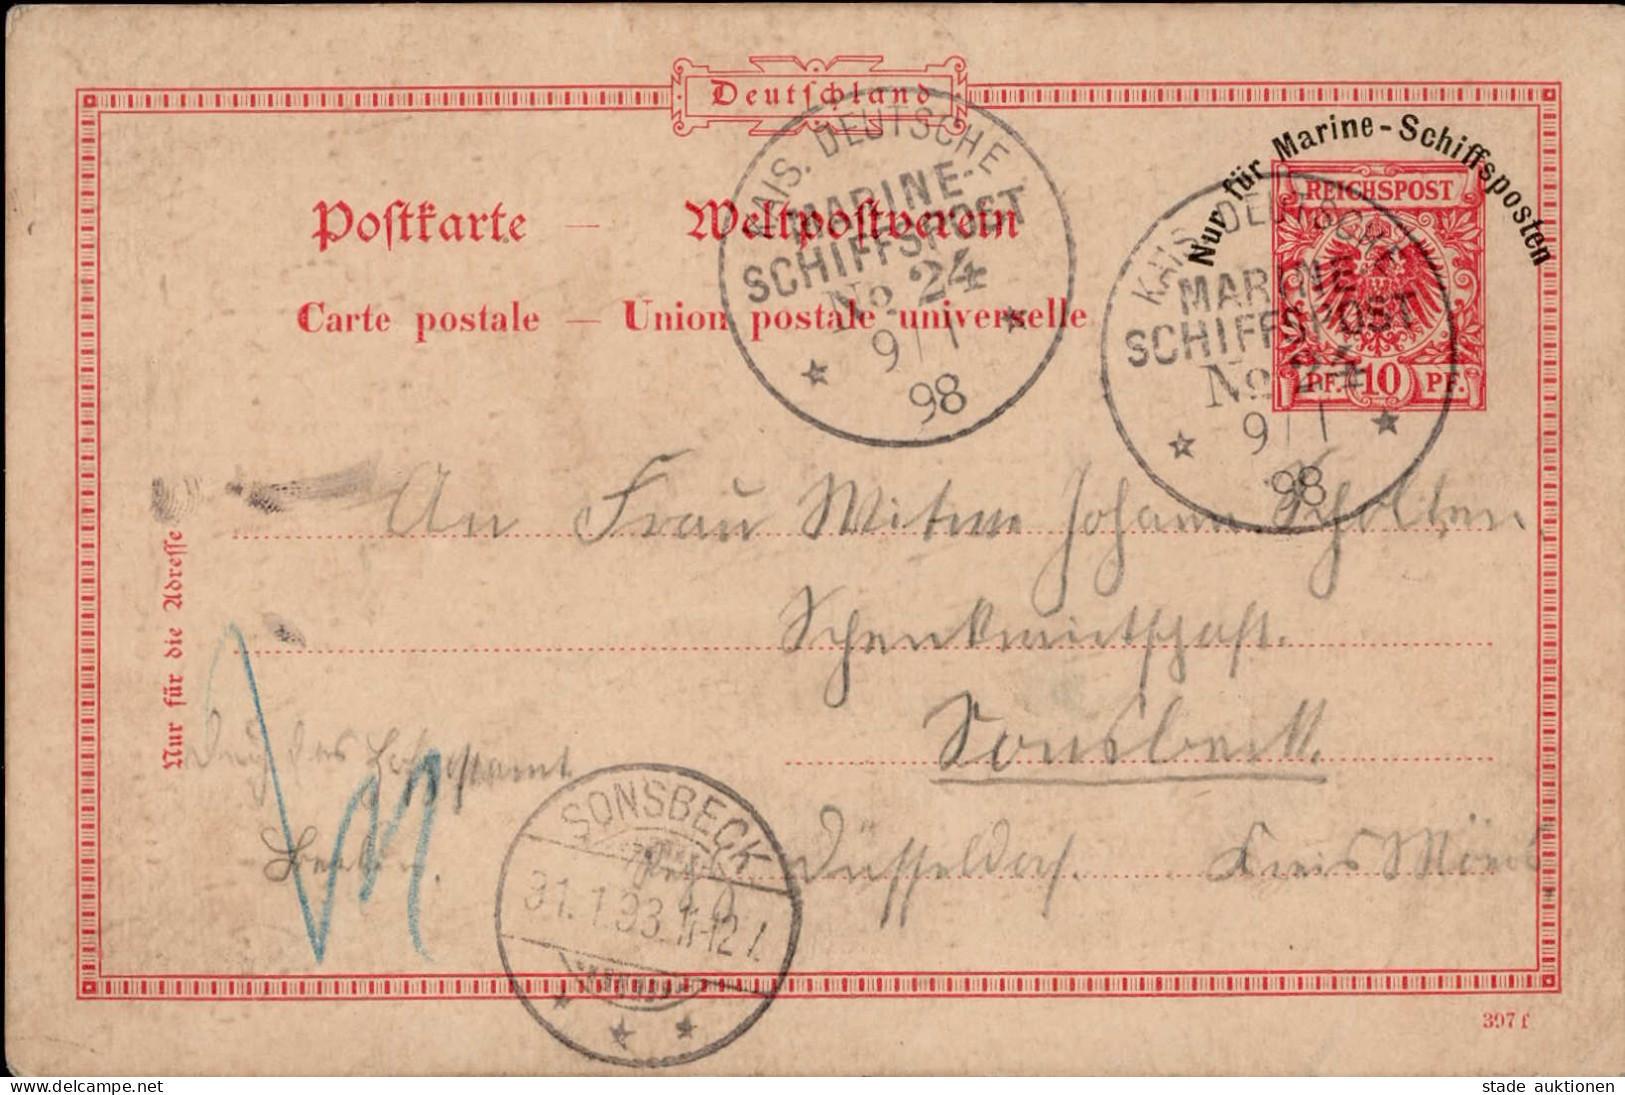 Deutschland
Nur für Marine-Schiffsposten
REICHSPOST
PF. 10 PF.
Postkarte — Weltpostverein
Carte postale — Union postale universelle
KAIS. DEUTSCHE
MARINE-
SCHIFFSPOST
No 24
9/1
98
KAIS. DEUTSCHE
MARINE-
SCHIFFSPOST
No 24
9/1
98
An Frau Witwe Johann Scholten
Schenkwirtschaft.
Sonsbeck.
Düsseldorf. Kreis Mörs
Nur für die Adresse
Durch das Hofpostamt
Berlin.
SONSBECK
31.1.98.11-12
397 f
delcampe.net
stade auktionen